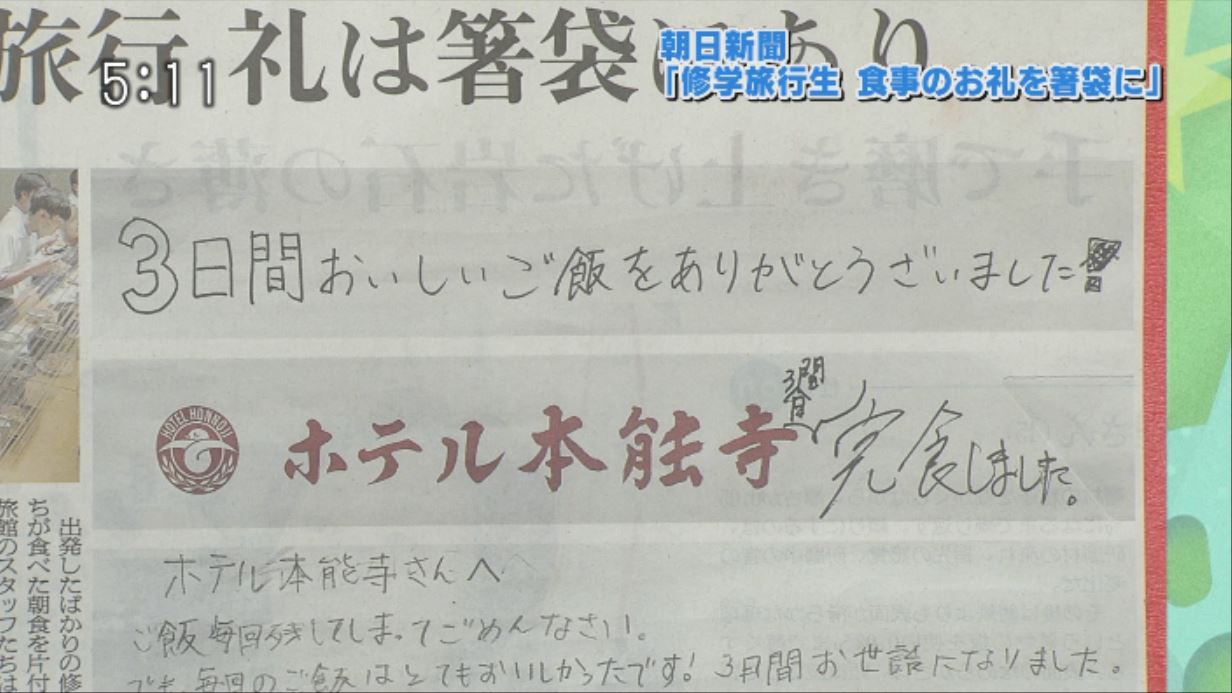 旅行 礼は箸袋にあり
5:11
朝日新聞
「修学旅行生 食事のお礼を箸袋に」
3日間おいしいご飯をありがとうございました
HOTEL HONNOJI
ホテル本能寺
3日間
完食しました。
ホテル本能寺さんへ
ご飯毎回残してしまってごめんなさい。
でも、毎回のご飯はとてもおいしかったです! 3日間お世話になりました。
出発したばかりの修
ちが食べた朝食を片付
旅館のスタッフたちは